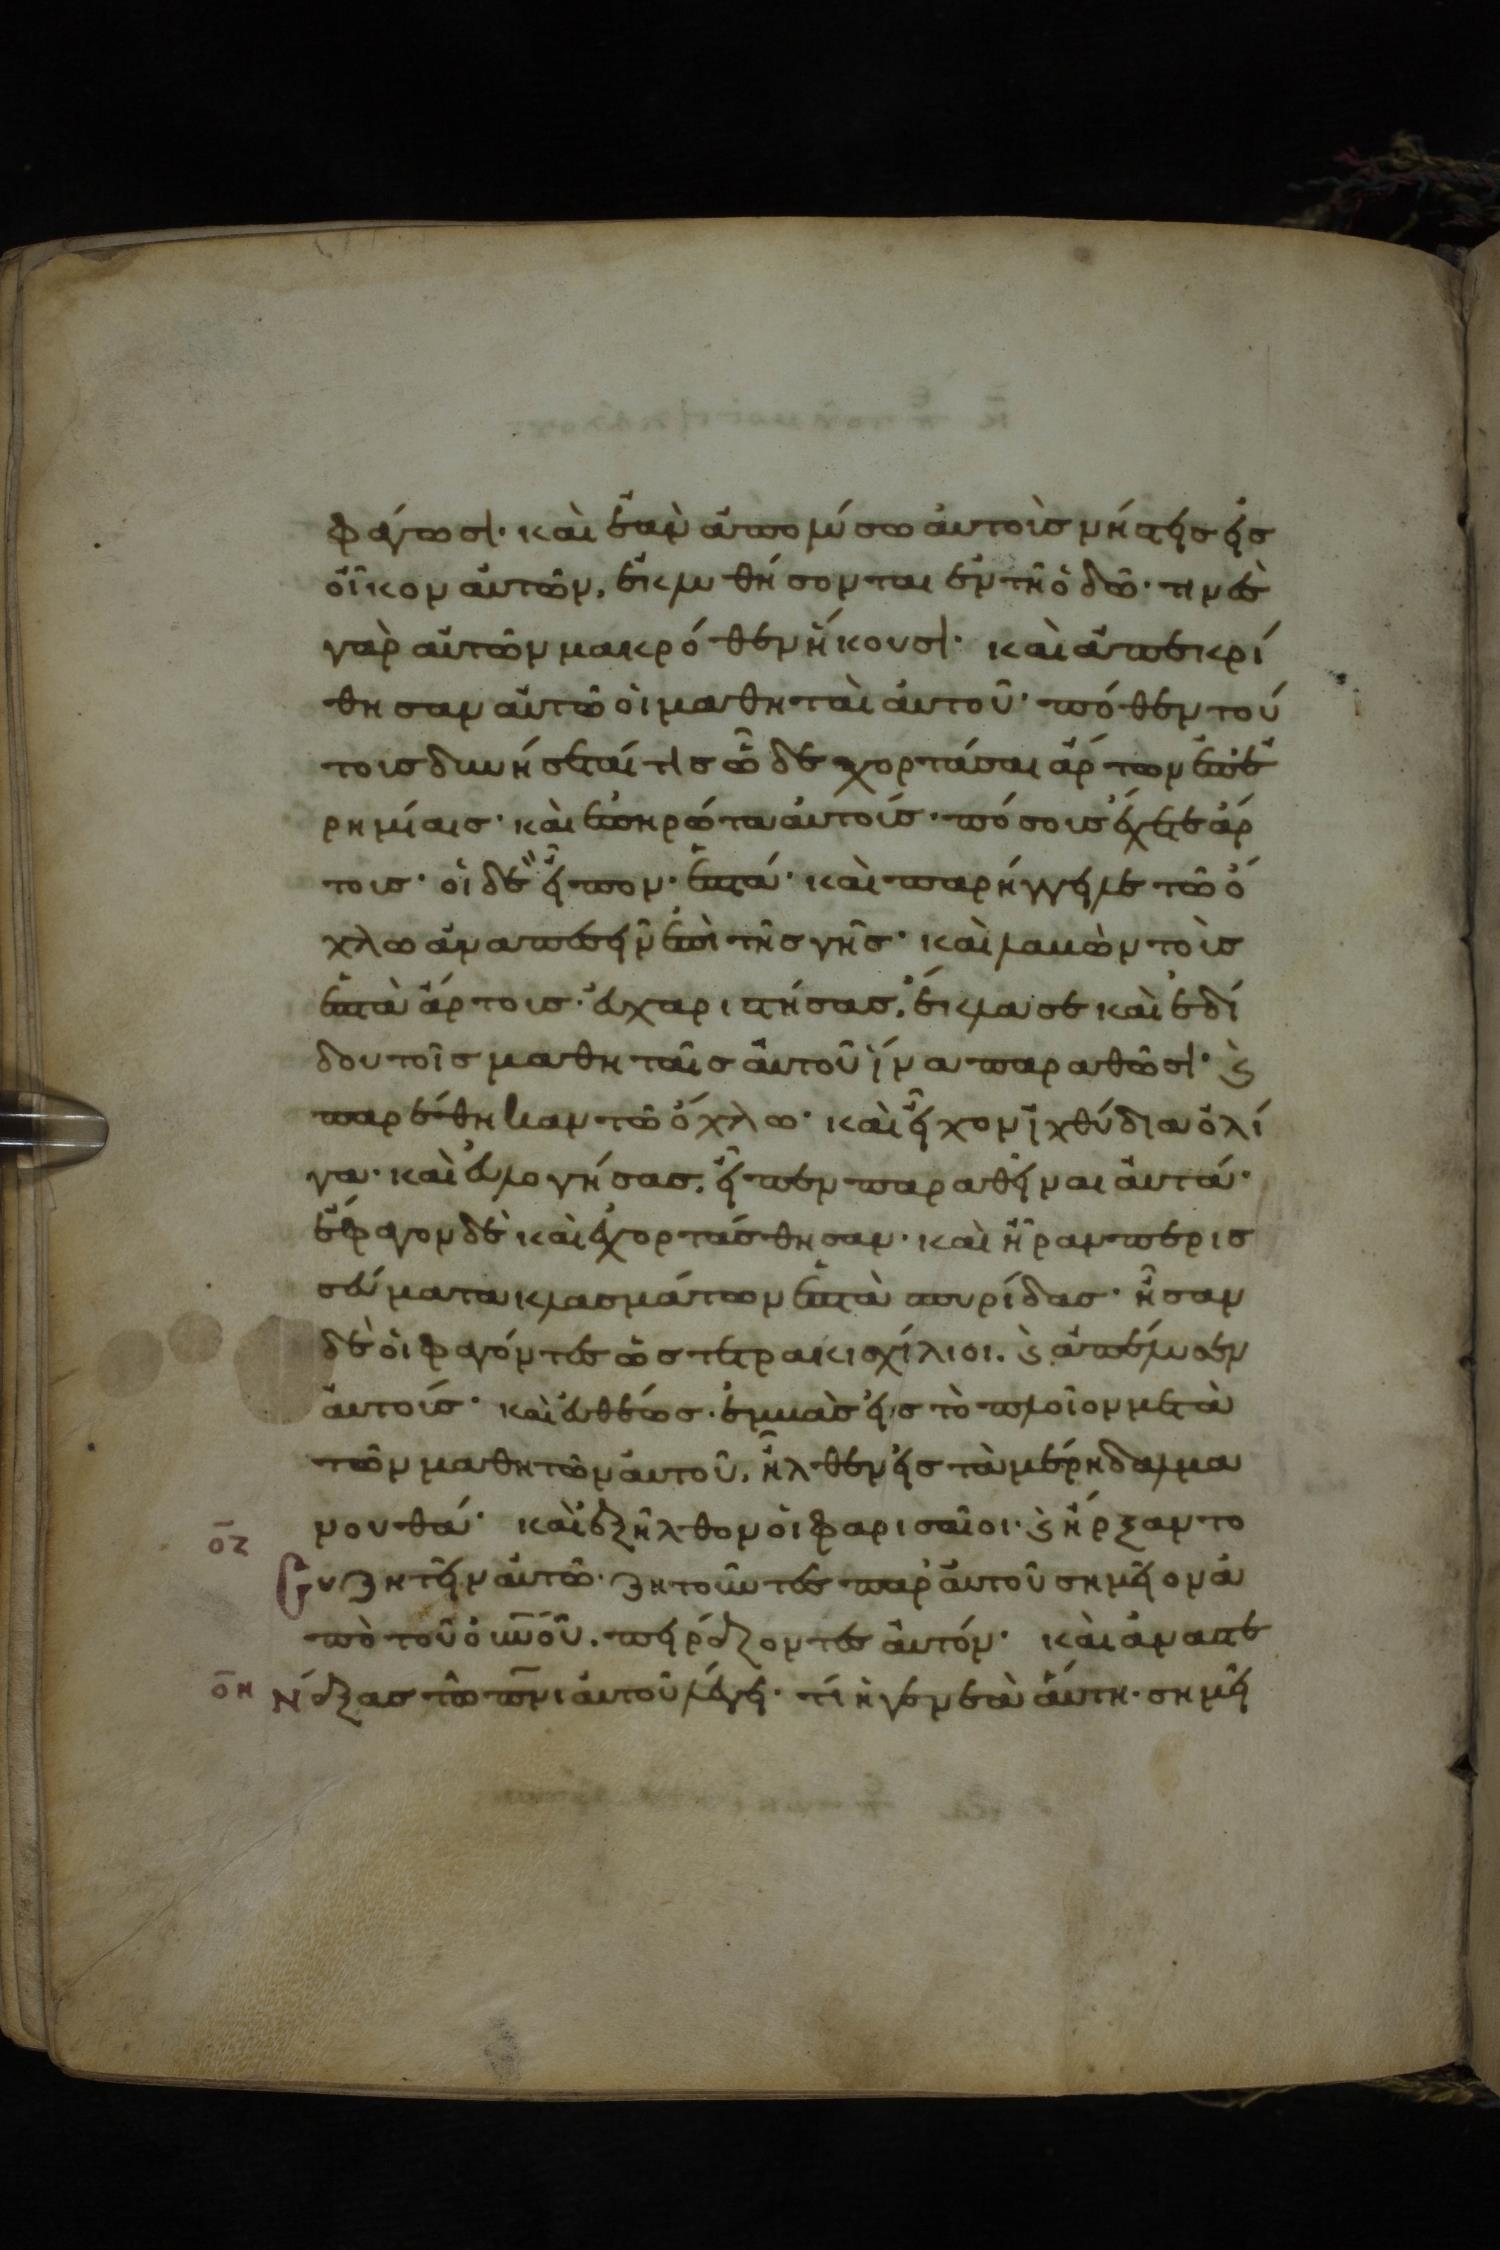 φάγωσι· καὶ ἐὰν ἀπολύσω αὐτοὺς νήστεις εἰς
οἶκον αὐτῶν, ἐκλυθήσονται ἐν τῆ ὁδῶ· τινὲς
γὰρ αὐτῶν μακρόθεν ἥκουσι· καὶ ἀπεκρί
θησαν αὐτῶ οἱ μαθηταὶ αὐτοῦ· πόθεν τού
τοις δυνήσεταί τις ὧδε χορτάσαι ἄρτων ἐπ ἐ
ρημίαις· καὶ ἐπηρώτα αὐτούς· πόσους ἔχετε ἄρ
τους· οἱ δὲ εἶπον· ἑπτά· καὶ παρήγγειλε τῶ ὄ
χλω ἀναπεσεῖν ἐπὶ τῆς γῆς· καὶ λαβὼν τοὺς
ἑπτὰ ἄρτους· εὐχαριστήσας, ἔκλασε καὶ ἐδί
δου τοῖς μαθηταῖς αὐτοῦ ἵνα παραθῶσι· ϗ
παρέθηκαν τῶ ὄχλω· καὶ εἶχον ἰχθύδια ὀλί
γα· καὶ εὐλογήσας, εἶπεν παραθεῖναι αὐτά·
ἔφαγον δὲ καὶ ἐχορτάσθησαν· καὶ ἦραν περισ
σεύματα κλασμάτων ἑπτὰ σπυρίδας· ἦσαν
δὲ οἱ φαγόντες ὡς τετρακισχίλιοι. ϗ ἀπέλυσεν
αὐτούς· καὶ εὐθέως· ἐμβὰς εἰς τὸ πλοῖον μετὰ
τῶν μαθητῶν αὐτοῦ, ἦλθεν εἰς τὰ μέρη δαλμα
νουθά· καὶ ἐξῆλθον οἱ φαρισαῖοι· ϗ ἤρξαντο
οζ Συζητεῖν αὐτῶ· ζητοῦντες παρ αὐτοῦ σημεῖον ἀ
πὸ τοῦ οὐνοῦ, πειράζοντες αὐτόν· καὶ ἀναστε
οη Νάξας τῶ πνι αὐτοῦ λέγει· τί ἡ γενεὰ αὕτη· σημεῖ